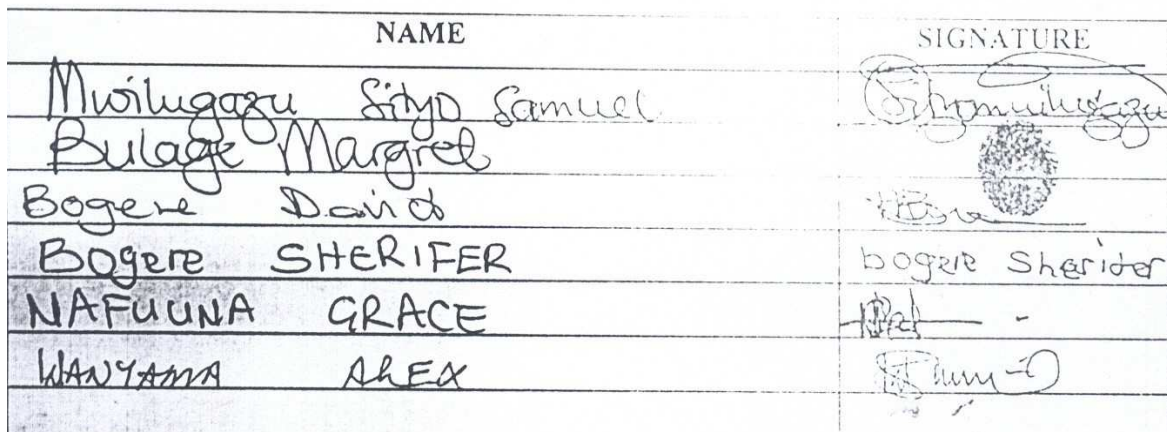 NAME SIGNATURE
Mwilugazu Sityo Samuel
Bulage Margret
Bogere David
Bogere SHERIFER bogere Sherifer
NAFUUNA GRACE
WANYAMA ALEX